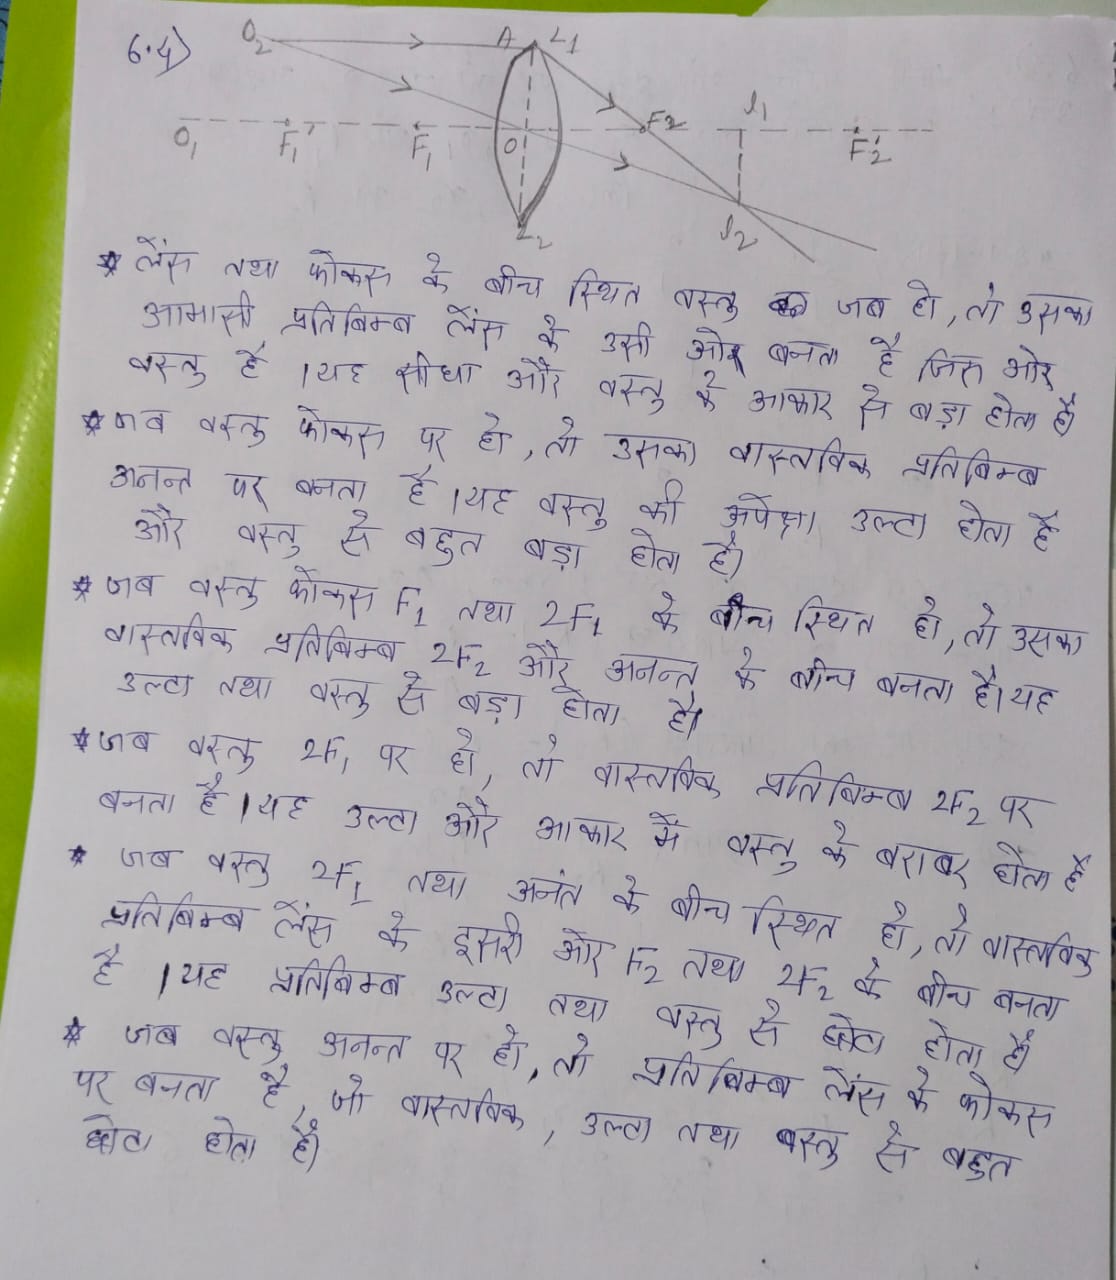 6.4)
O2 A L1
I1
O1 F1' F1 O F2 F2'
L2 I2
* लैंस तथा फोकस के बीच स्थित वस्तु जब हो, तो उसका
आभासी प्रतिबिम्ब लैंस के उसी ओर बनता है जिस ओर
वस्तु है । यह सीधा और वस्तु के आकार से बड़ा होता है।
* जब वस्तु फोकस पर हो, तो उसका वास्तविक प्रतिबिम्ब
अनन्त पर बनता है । यह वस्तु की अपेक्षा उल्टा होता है
और वस्तु से बहुत बड़ा होता है।
* जब वस्तु फोकस F1 तथा 2F1 के बीच स्थित हो, तो उसका
वास्तविक प्रतिबिम्ब 2F2 और अनन्त के बीच बनता है। यह
उल्टा तथा वस्तु से बड़ा होता है।
* जब वस्तु 2F1 पर हो, तो वास्तविक प्रतिबिम्ब 2F2 पर
बनता है । यह उल्टा और आकार में वस्तु के बराबर होता है
* जब वस्तु 2F1 तथा अनंत के बीच स्थित हो, तो वास्तविक
प्रतिबिम्ब लैंस के दूसरी ओर F2 तथा 2F2 के बीच बनता
है । यह प्रतिबिम्ब उल्टा तथा वस्तु से छोटा होता है।
* जब वस्तु अनन्त पर हो, तो प्रतिबिम्ब लैंस के फोकस
पर बनता है, जो वास्तविक, उल्टा तथा वस्तु से बहुत
छोटा होता है।